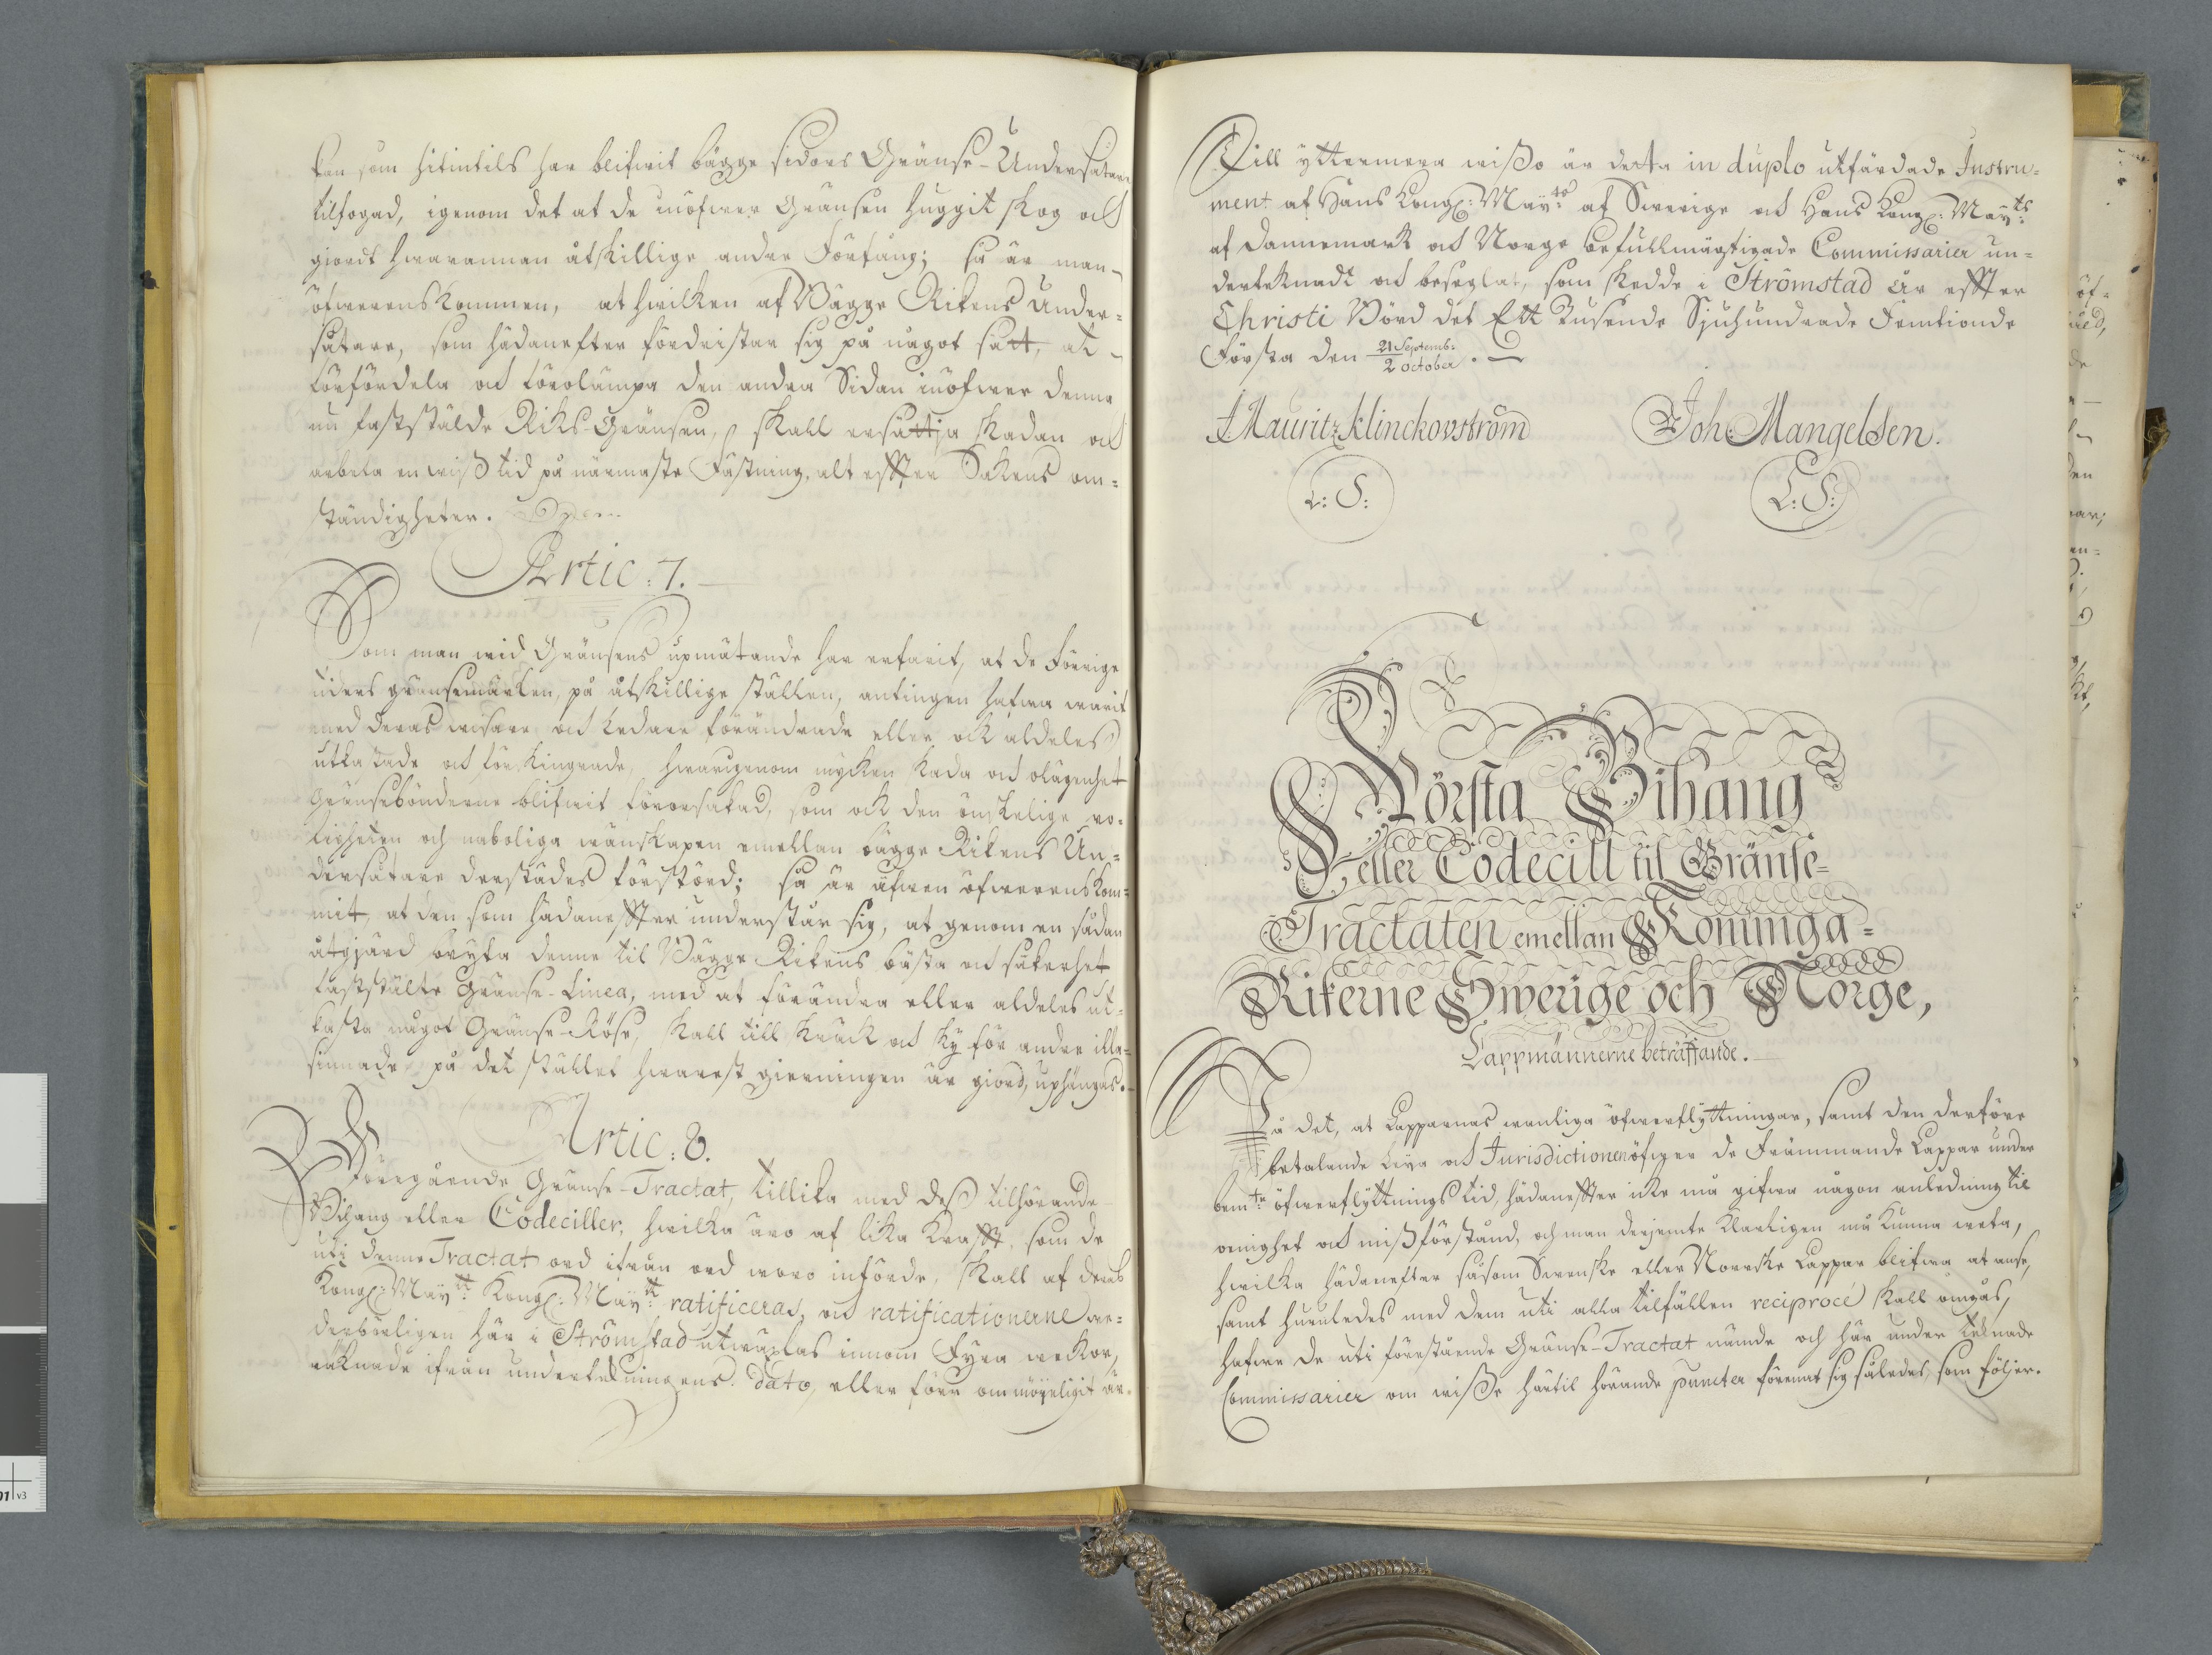 kan som hitintils har blifwit bägge sidors Gränse-Undersåtare
tilfogad, igenom det at de inöfwer Gränsen huggit skog och
giordt hwarannan åtskillige andre Förfång; så är man
öfwerenskommen, at hwilken af Bägge Rikens Under=
såtare, som hädanefter fördristar sig på något sätt, at
förfördela och förolämpa den andra Sidan inöfwer denna
nu faststälde Riks-Gränsen, skall ersättja skadan och
arbeta en wiss tid på närmaste Fästning, alt effter Sakens om=
ständigheter.
Artic: 7.
Som man wid Gränsens upmätande har erfarit, at de Förrige
tiders gränsemärken, på åtskillige ställen, antingen hafwa warit
med deras wisare och ledare förändrade eller ock aldeles
utkastade och förskingrade, hwarigenom mycken skada och olägenhet
Gränsebönderne blifwit förorsakad, som ock den önskelige ro=
ligheten och naboliga wänskapen emellan bägge Rikens Un=
dersåtare derstädes förstörd; så är äfwen öfwerenskom=
mit, at den som hädanefter understår sig, at genom en sådan
åtgjärd bryta denne til Bägge Rikens bästa och säkerhet
faststälte Gränse-Linea, med at förändra eller aldeles ut=
kasta något Gränse-Röse, skall till skräck och sky för andre illa=
sinnade på det stället hwarest gierningen är giord, uphängas.
Artic: 8.
Föregående Gränse-Tractat, tillika med dess tilhörande
Bihang eller Codeciller, hwilka äro af lika Krafft, som de
uti denne Tractat ord ifrån ord woro införde, skall af deras
Kongl: Maytt: Kongl: Maytt: ratificeras, och ratificationerne we=
derbörligen här i Strömstad utwäxlas innom Fyra weckor,
räknade ifrån underteckningens dato, eller förr om möyeligit är.
Till yttermera wisso är detta in duplo utfärdade Instru=
ment af Hans Kongl: Mayts: af Swerige och Hans Kongl: Mayts:
af Dannemark och Norge befullmägtigade Commissarier un=
derteknadt och beseglat, som skedde i Strömstad år effter
Christi Börd det Ett Tusende Sjuhundrade Femtionde
Första den 21 Septemb: / 2 October.
J. Mauritz Klinckovström
Joh Mangelsen.
L: S:
L: S:
Första Bihang
eller Codecill til Gränse=
Tractaten emellan Konunga=
Rikerne Swerige och Norge,
Lappmännerne beträffande.
På det, at Lapparnas wanliga öfwerflyttningar, samt den derföre
betalande Leya och Jurisdictionen öfwer de Främmande Lappar under
bemte: öfwerflyttnings tid, hädaneffter icke må gifwa någon anledning til
oenighet och missförstånd, och man derjemte klarligen må kunna weta,
hwilka hädanefter såsom Swenske eller Norrske Lappar blifwa at anse,
samt huruledes med dem uti alla tilfällen reciprocé skall omgås,
hafwe de uti förestående Gränse-Tractat nämde och här under teknade
Commissarier om wisse härtil hörande puncter förenat sig således, som följer.